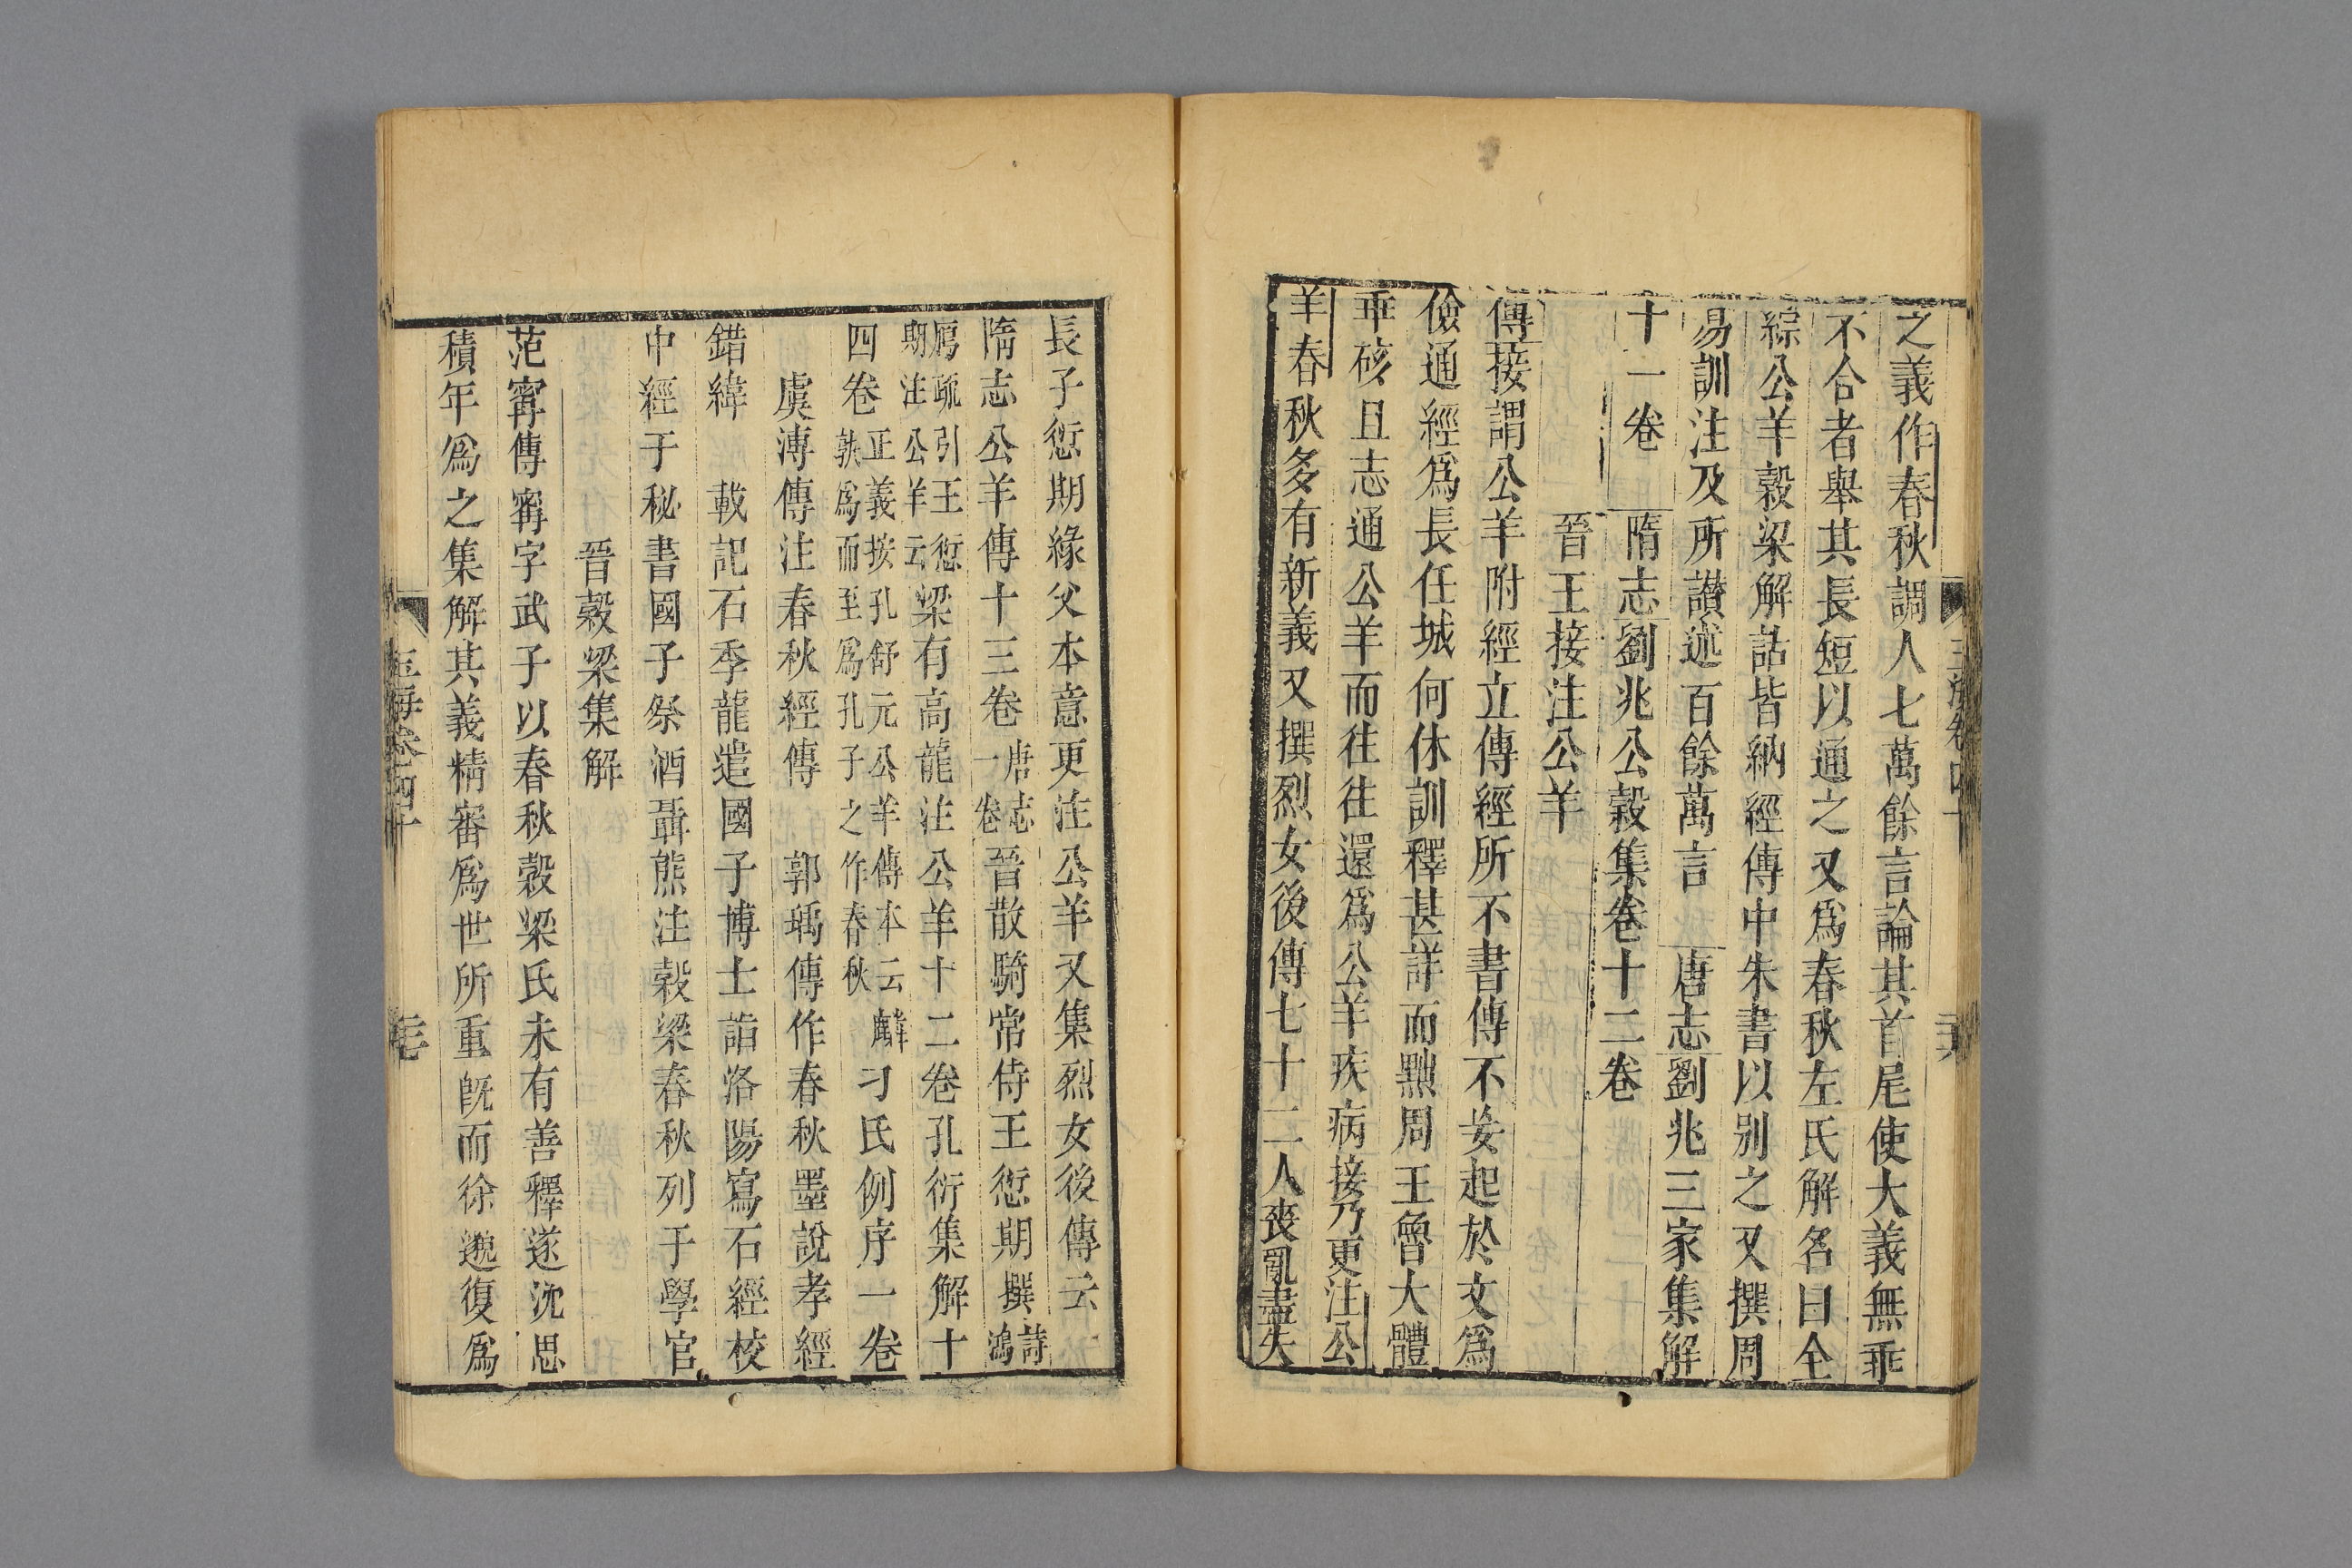 之義作春秋調人七萬餘言論其首尾使大義無乖
不合者舉其長短以通之又爲春秋左氏解名曰全
綜公羊穀梁解詁皆納經傳中朱書以别之又撰周
易訓注及所讃述百餘萬言 唐志劉兆三家集解
十一卷 隋志劉兆公穀集卷十二卷
晉王接注公羊
傳接謂公羊附經立傳經所不書傳不妄起於文爲
儉通經爲長任城何休訓釋甚詳而黜周王魯大體
乖硋且志通公羊而往往還爲公羊疾病接乃更注公
羊春秋多有新義又撰烈女後傳七十二人喪亂盡失
長子愆期緣父本意更注公羊又集烈女後傳云
隋志公羊傳十三卷唐志一卷晉散騎常侍王愆期撰詩鴻
鴈疏引王愆期注公羊云梁有高龍注公羊十二卷孔衍集解十
四卷正義按孔舒元公羊傳本云麟孰爲而至爲孔子之作春秋刁氏例序一卷
虞溥傳注春秋經傳 郭瑀傳作春秋墨說孝經
錯緯 載記石季龍遣國子博士詣洛陽寫石經校
中經于秘書國子祭酒聶熊注穀梁春秋列于學官
晉穀梁集解
范甯傳甯字武子以春秋穀梁氏未有善釋遂沈思
積年爲之集解其義精審爲世所重旣而徐邈復爲
玉海卷四十